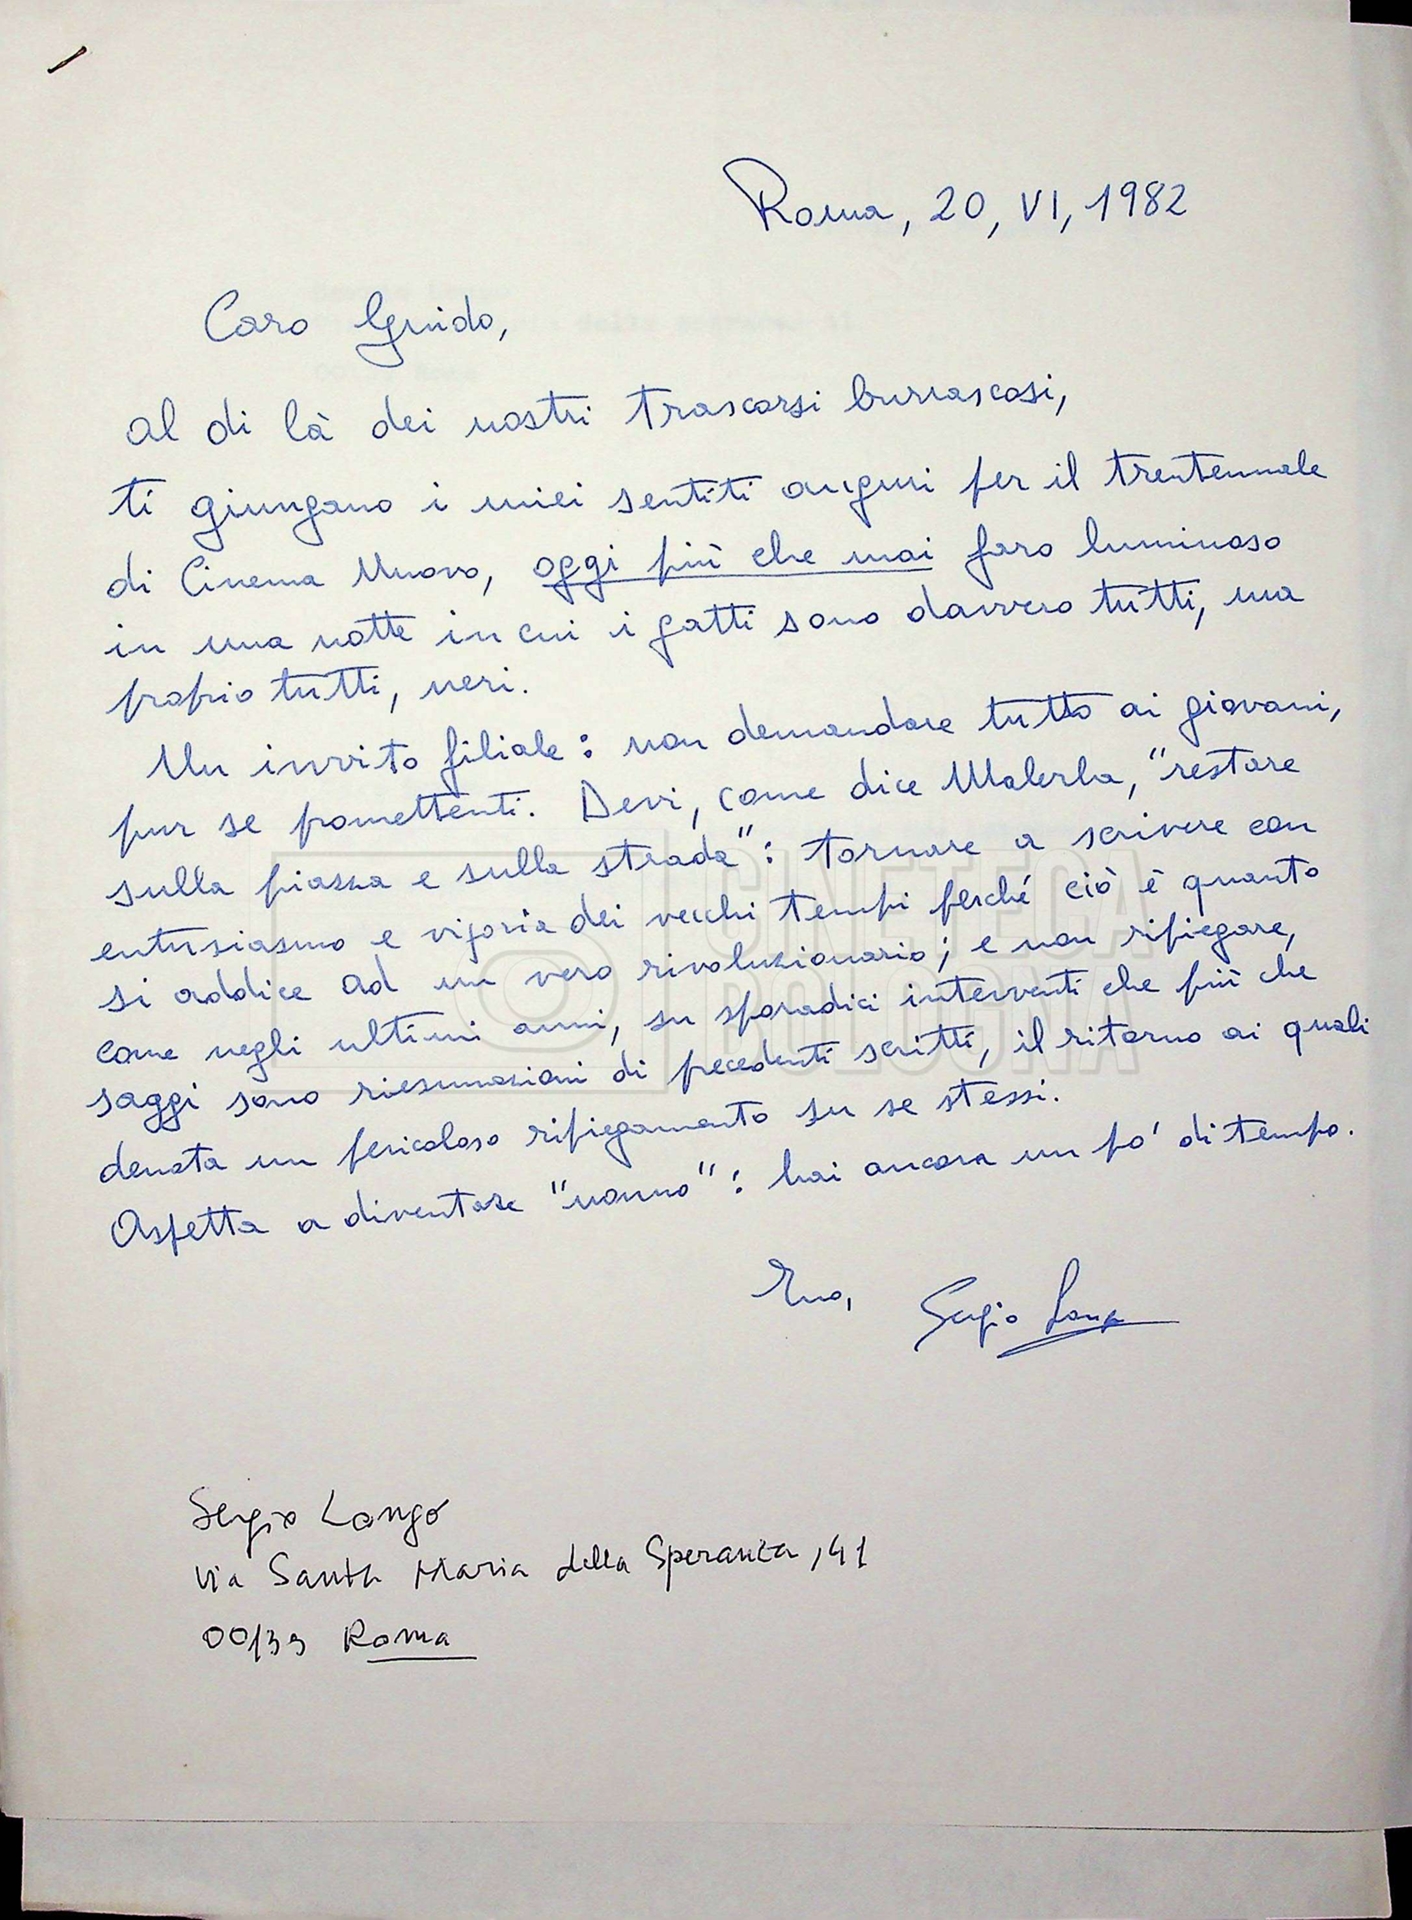 Roma, 20, VI, 1982
Caro Guido,
al di là dei nostri trascorsi burrascosi,
ti giungano i miei sentiti auguri per il trentennale
di Cinema Nuovo, oggi più che mai faro luminoso
in una notte in cui i gatti sono davvero tutti, ma
proprio tutti, neri.
Un invito filiale: non demandare tutto ai giovani,
pur se promettenti. Devi, come dice Malerba, "restare
sulla piazza e sulla strada": tornare a scrivere con
entusiasmo e vigoria dei vecchi tempi perché ciò è quanto
si addice ad un vero rivoluzionario; e non ripiegare,
come negli ultimi anni, su sporadici interventi che più che
saggi sono riesumazioni di precedenti scritti, il ritorno ai quali
denota un pericoloso ripiegamento su se stessi.
Aspetta a diventare "nonno": hai ancora un po' di tempo.
Tuo, Sergio Longo
Sergio Longo
Via Santa Maria della Speranza, 41
00139 Roma
CINETECA
BOLOGNA